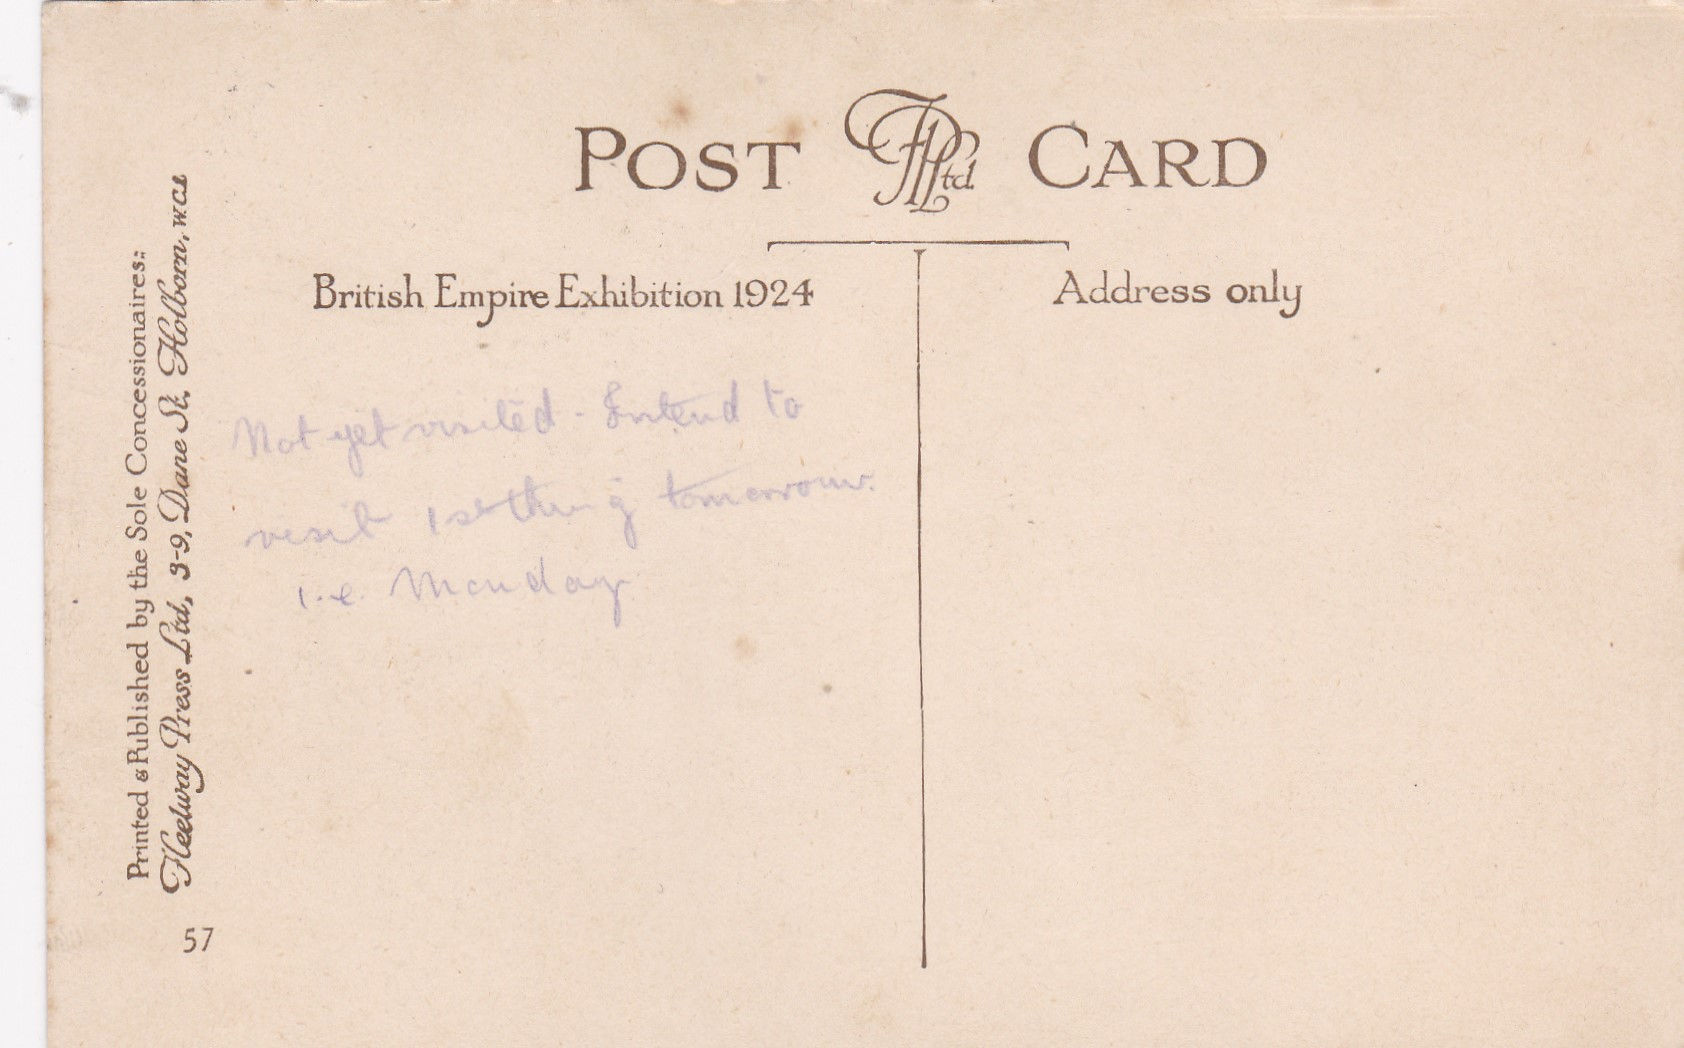 POST CARD
British Empire Exhibition 1924
Address only
Not yet visited - Intend to
visit 1st thing tomorrow.
i.e. Monday
Printed & Published by the Sole Concessionaires:
Fleetway Press Ltd, 3-9, Dane St. Holborn, W.C.1
57